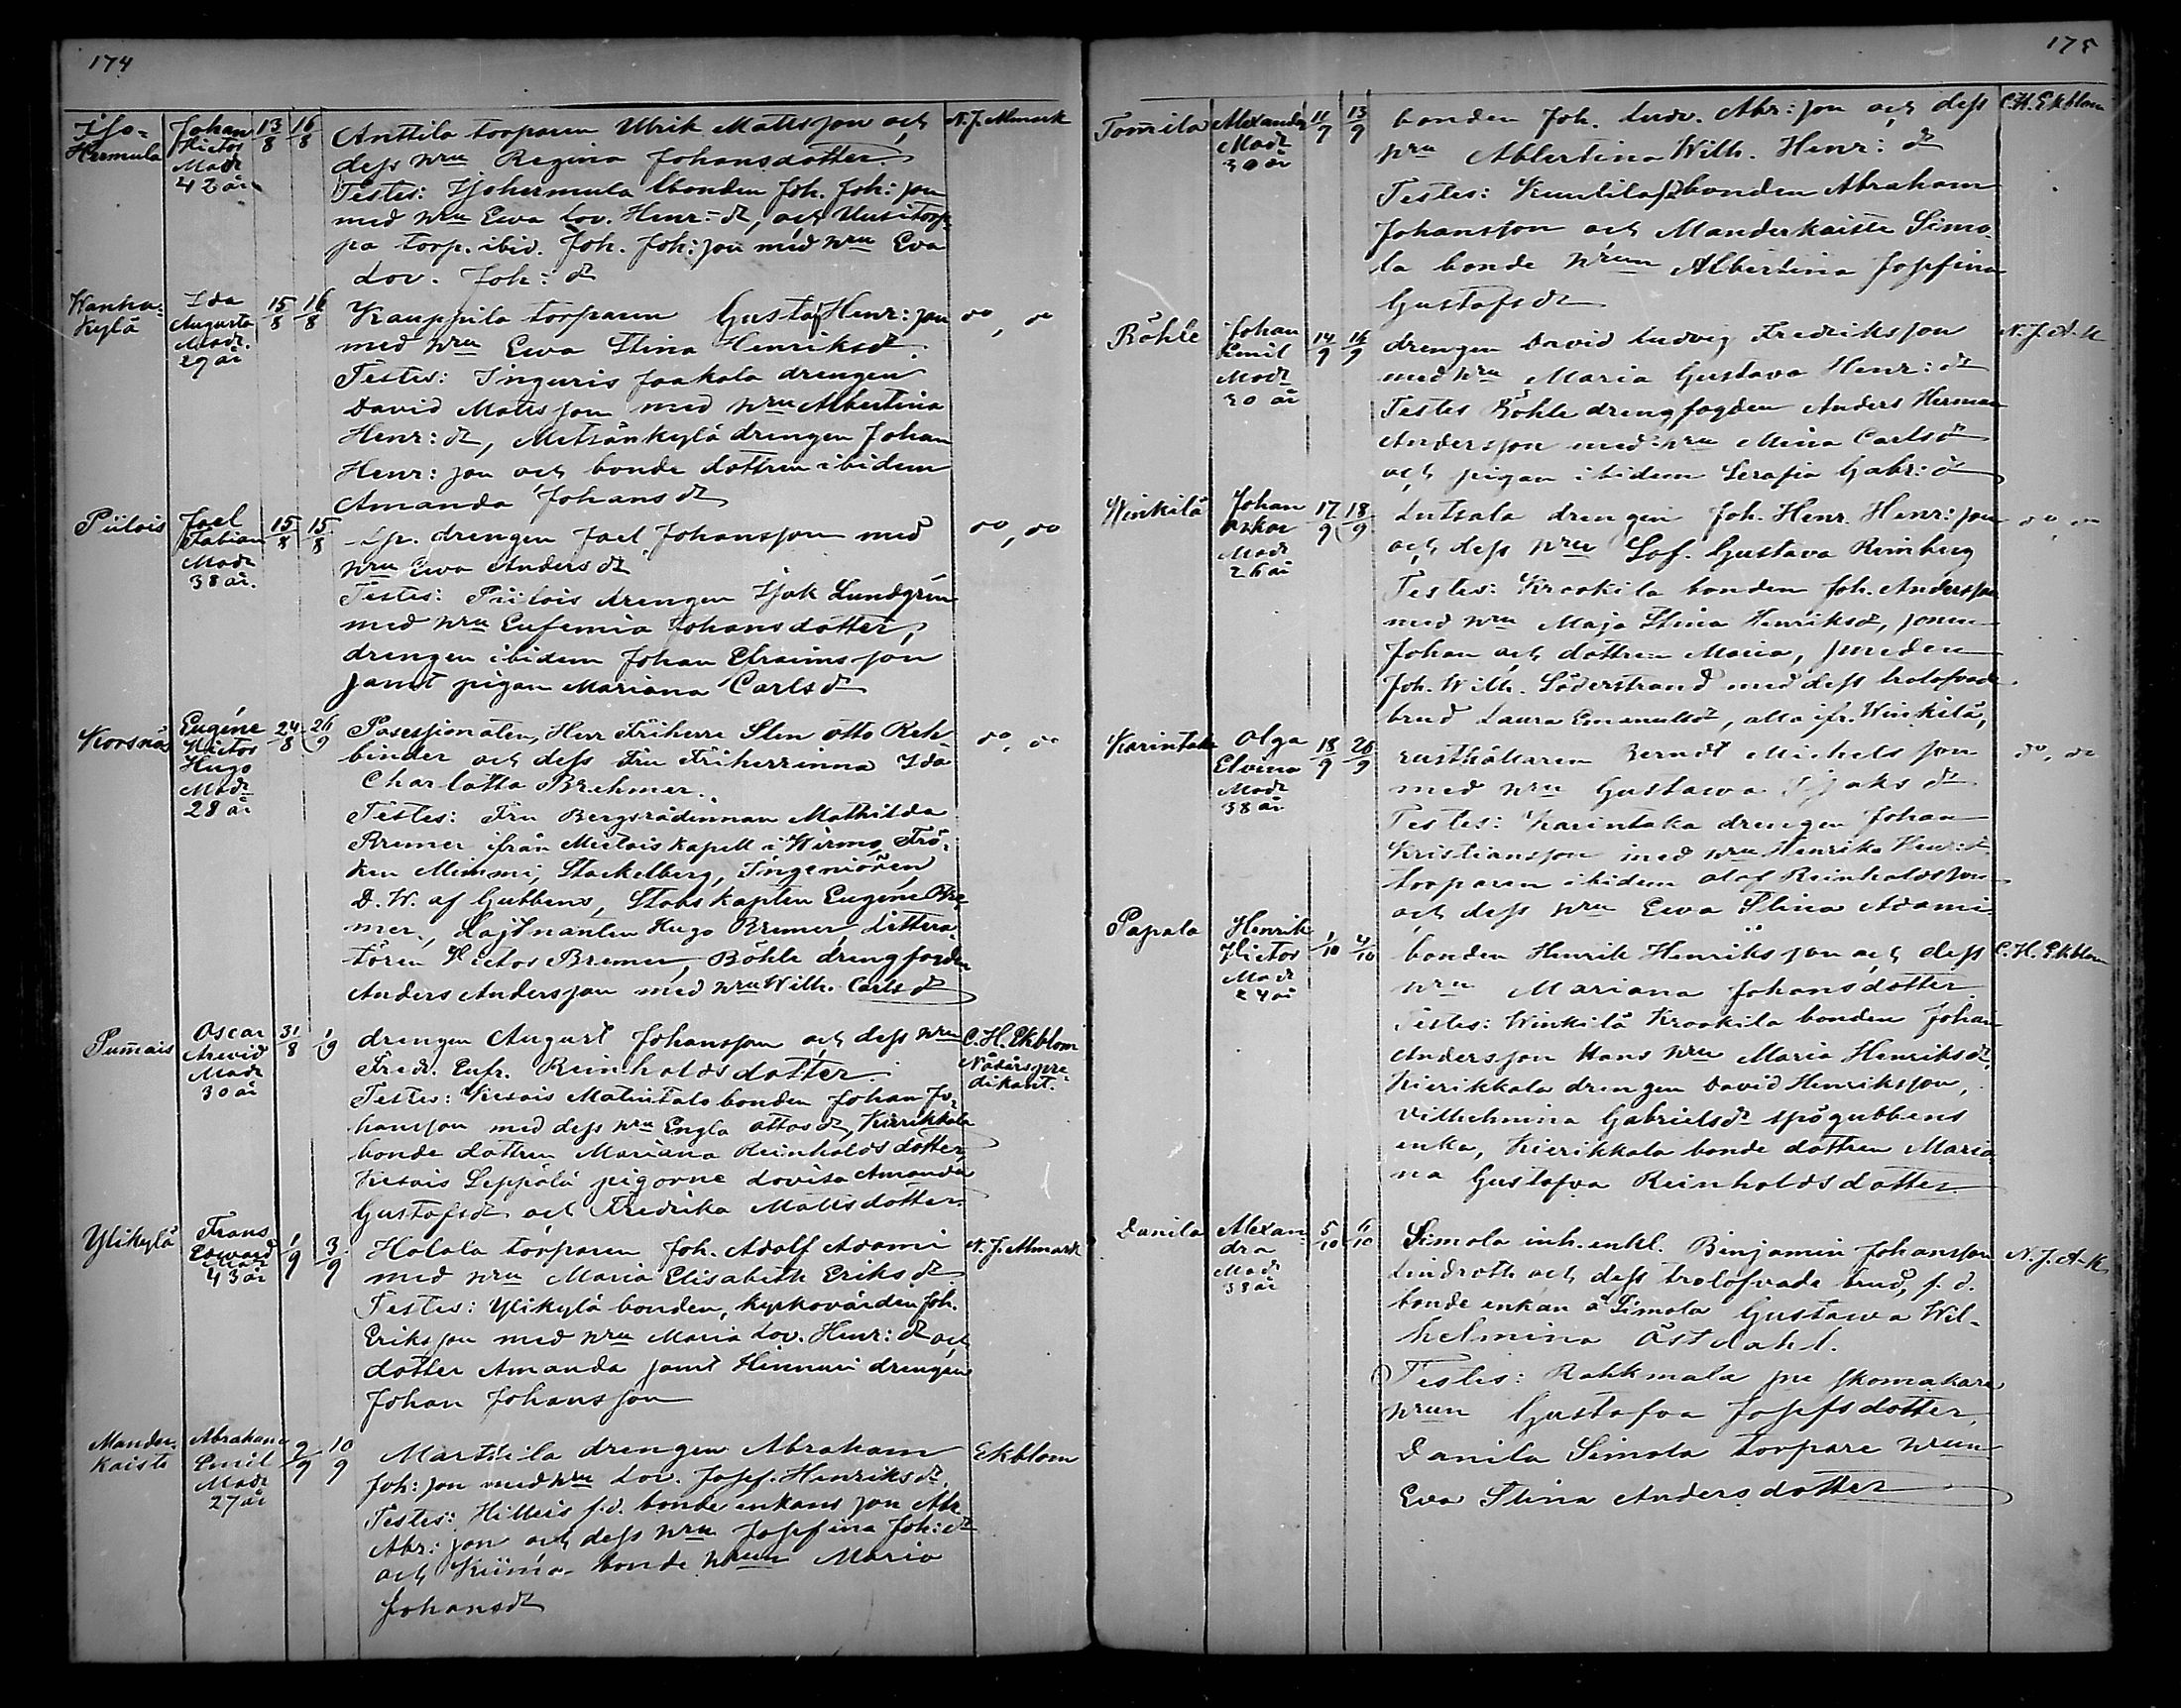 174
Johan Victor Modr 42 år 13/8 16/8 Anttila torparen Ulrik Mattsson och N. J. Almark
dess Hru Regina Johansdotter.
Testes: Isohermula bonden Joh. Joh:son
med Hru Ewa Lov. Henr:dr, och Uusitorp-
pa torp. ibid. Joh. Joh:son med Hru Eva
Lov. Joh:dr
Wanha-kylä Ida Augusta Modr. 27 år 15/8 16/8 Krauppila torparen Gustaf Henr:son do, do
med Hru Ewa Stina Henriksdr.
Testes: Inguris Jaakola drengen
David Mattsson med Hru Albertina
Henr:dr, Metsänkylä drengen Johan
Henr:son och bonde dottren ibidem
Amanda Johansdr
Piilois Joel Fabian Modr 38 år. 15/8 15/8 Sp. drengen Joel Johansson med do, do
Hru Ewa Andersdr
Testes: Piilois drengen Isak Lundgrén
med Hru Eufemia Johansdotter,
drengen ibidem Johan Efraimsson
samt pigan Mariana Carlsdr
Korsnäs Eugéne Victor Hugo Modr 28 år 24/8 26/9 Possessionaten, Herr Friherre Sten Otto Reh- do, do
binder och dess Fru Friherrinna Ida
Charlotta Brehmer.
Testes: Fru Bergsrådinnan Mathilda
Bremer ifrån Mietois Kapell i Wirmo, Frö-
ken Mimmi, Stackelberg, Ingeniören
D. W. af Gubbens, Stabskapten Eugéne Bre-
mer, Löjtnanten Hugo Bremer, Littera-
tören Victor Bremer, Böhle drengfogden
Anders Andersson med Hru Wilh. Carlsdr
Pumais Oscar Arwid Modr 30 år 31/8 1/9 drengen August Johansson och dess Hru C. H. Ekblom Nådårspredikant.
Fredr. Eufr. Reinholdsdotter.
Testes: Kesois Matintalo bonden Johan Jo-
hansson med dess Hru Engla Ottosdr, Kierikkala
bonde dottren Mariana Reinholdsdotter,
Kesois Leppälä pigorne Lovisa Amanda
Gustafsdr och Fredrika Mattsdotter
Ylikylä Frans Edward Modr 43 år 1/9 3/9 Holola torparen Joh. Adolf Adami N. J. Almark
med Hru Maria Elisabeth Eriksdr
Testes: Ylikylä bonden, kyrkovärden Joh.
Eriksson med Hru Maria Lov. Henr:dr och
dotter Amanda samt Hinnuri drengen
Johan Johansson
Mander-kaiste Abraham Emil Modr 27 år 2/9 10/9 Marttila drengen Abraham Ekblom
Joh:son med Hru Lov. Josef. Henriksdr
Testes: Hilleis f.d. bonde enkans son Abr.
Abr:son och dess Hru Josefina Joh:dr
och bonde Hrun Maria
Johansdr
175
Tomila Alexander Modr 30 år 11/9 13/9 bonden Joh. Ludv. Abr:son och dess C. H. Ekblom
Hru Albertina Wilh. Henr:dr
Testes: bonden Abraham
Johansson och Manderkaiste Simo-
la bonde Hrun Albertina Josefina
Gustafsdr
Böhle Johan Emil Modr 30 år 14/9 16/9 drengen David Ludvig Fredriksson N. J. A-k
med Hru Maria Gustava Henr:dr
Testes Böhle drengfogden Anders Herman
Andersson med Hru Mina Carlsdr
och pigan ibidem Serafia Gabr:dr
Winkilä Johan Oskar Modr 26 år 17/9 18/9 Lutsala drengen Joh. Henr. Henr:son do, do
och dess Hru Sof. Gustava Reinberg
Testes: Krookila bonden Joh. Andersson
med Hru Maja Stina Henriksdr, sonen
Johan och dottren Maria, smeden
Joh. Wilh. Söderstrand med dess trolofvade
brud Laura Emanuelsdr, alla ifr. Winkilä,
Karintaka Olga Elvina Modr 38 år 18/9 26/9 rusthållaren Berndt Michelsson do, do
med Hru Gustawa Isaksdr
Testes: Karintaka drengen Johan
Kristiansson med Hru Henrika Henr:dr
torparen ibidem Olof Reinholdsson
och dess Hru Ewa Stina Adami
Papala Henrik Victor Modr 24 år 1/10 4/10 bonden Henrik Henriksson och dess C. H. Ekblom
Hru Mariana Johansdotter
Testes: Winkilä Krookila bonden Johan
Andersson Hans Hru Maria Henriksdr,
Kierikkala drengen David Henriksson,
Vilhelmina Gabrielsdr spögubbens
enka, Kierikkala bonde dottren Maria-
na Gustafva Reinholdsdotter
Danila Alexandra Modr 38 år 5/10 6/10 Simola inh. enkl. Binjamin Johansson N. J. A-k
Lindroth och dess trolofvade brud, f. d.
bonde enkan å Simola Gustawa Wil-
helmina Östdahl.
Testes: Rahkmala skomakare
Hrun Gustafva Josefsdotter,
Danila Simola torpare Hrun
Eva Stina Andersdotter